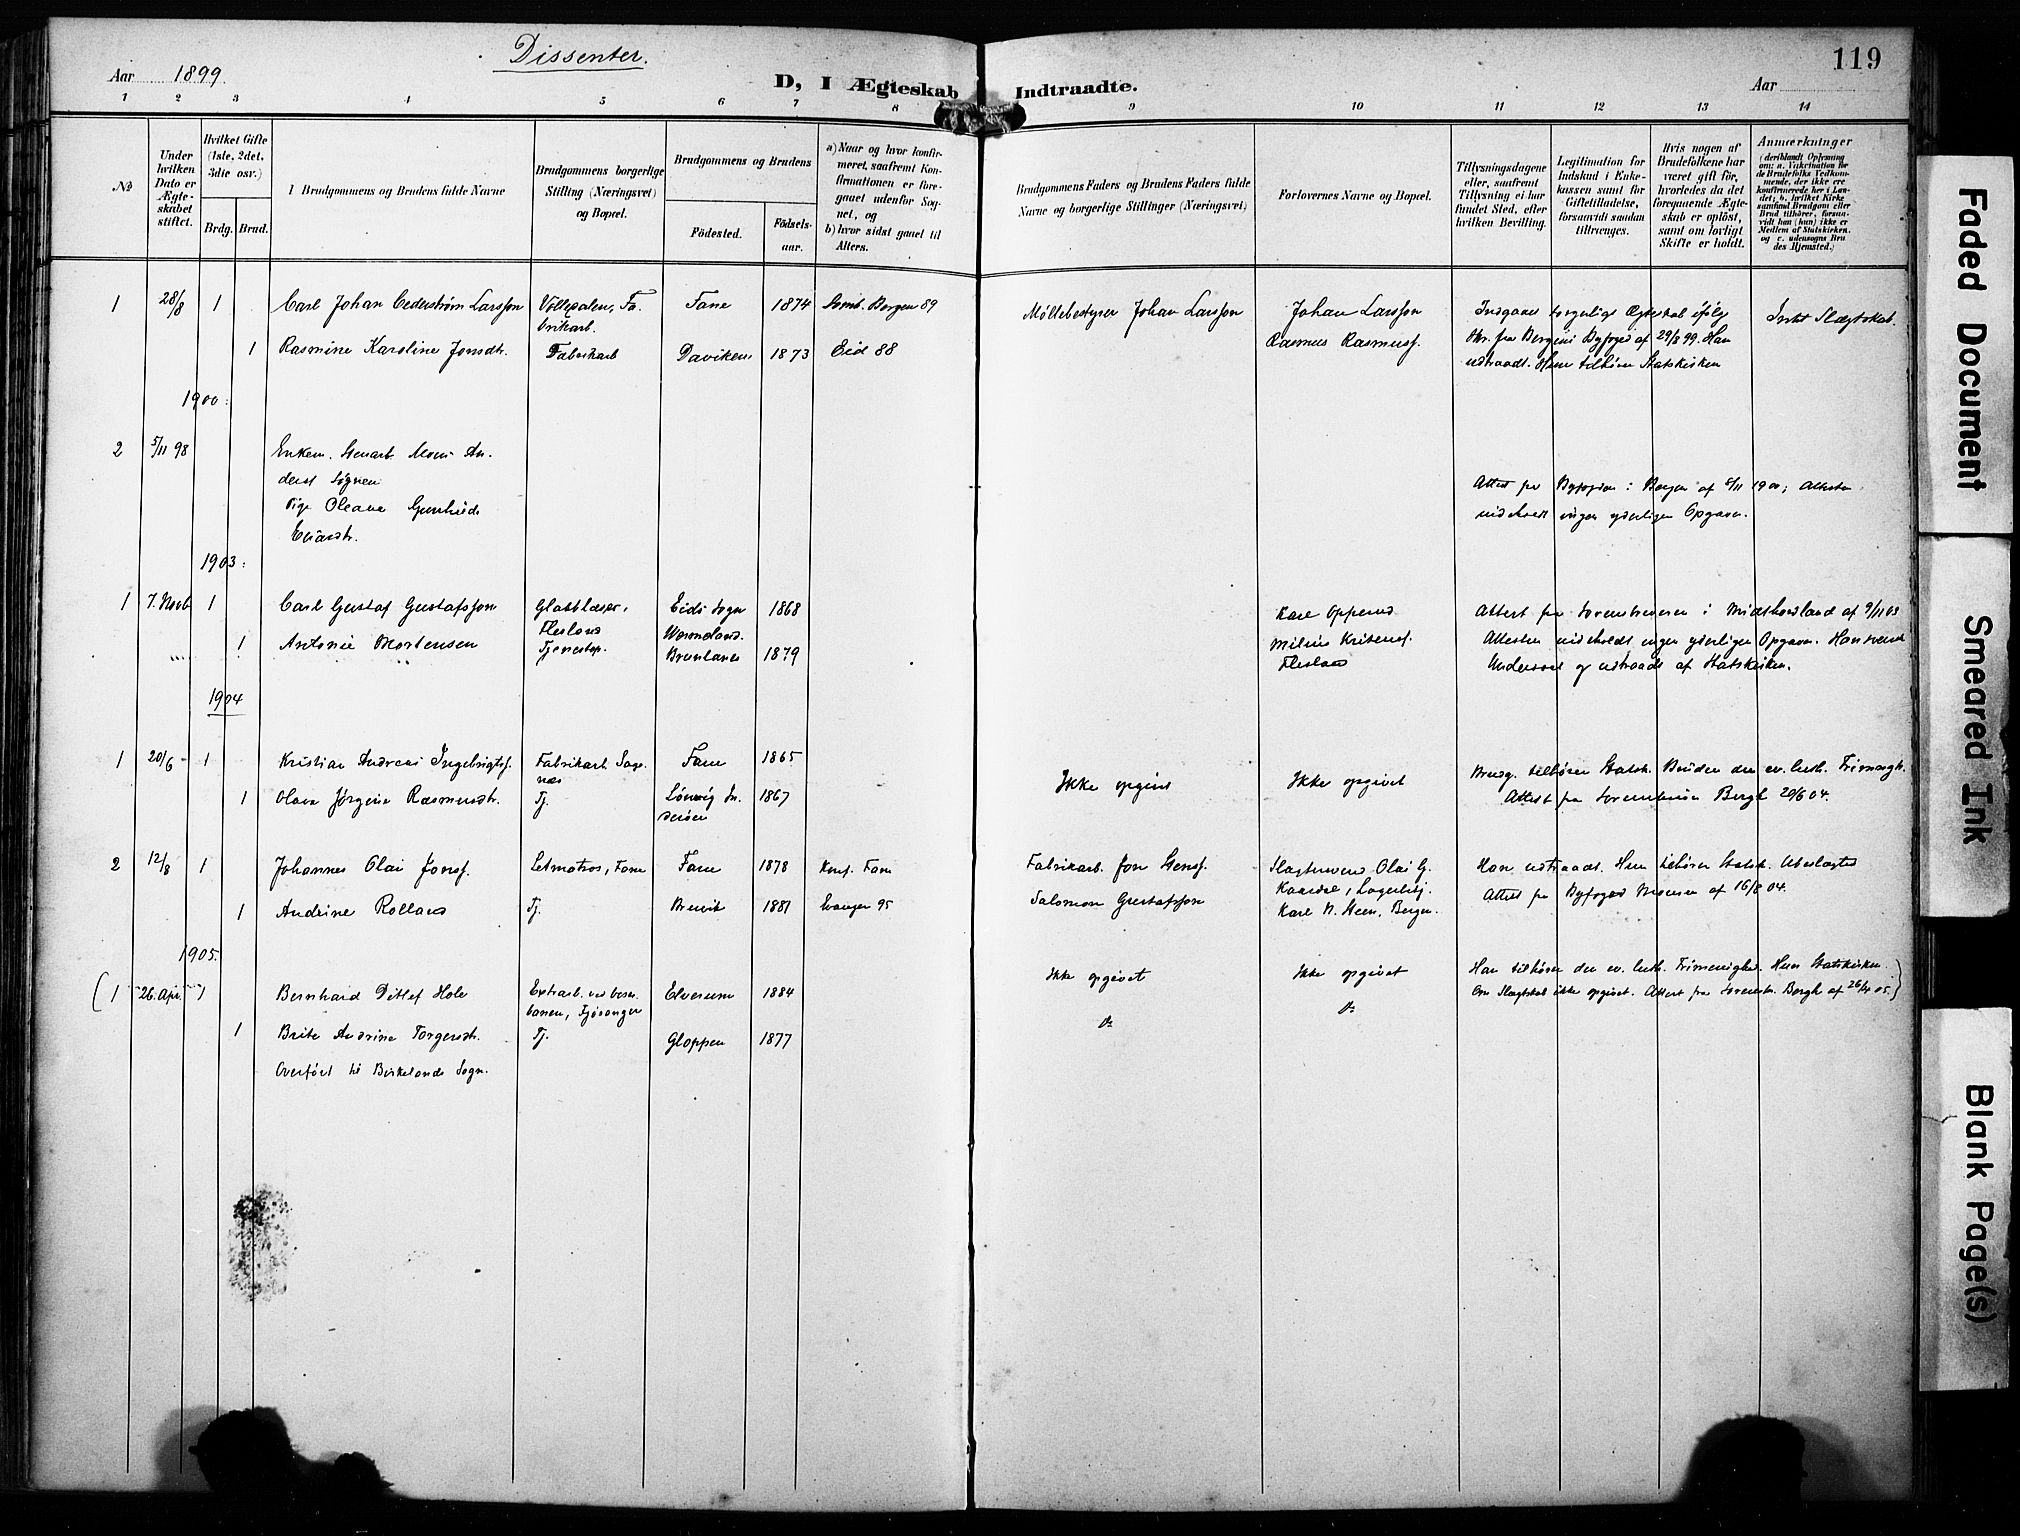 Dissenter.
Aar 1899.
D, I Ægteskab Indtraadte.
Aar
119
1 2 3 4 5 6 7 8 9 10 11 12 13 14
No
Under hvilken Dato er Ægteskabet stiftet.
Hvilket Gifte (1ste, 2det, 3die osv.)
Brdg. Brud.
Brudgommens og Brudens fulde Navne
Brudgommens borgerlige Stilling (Næringsvei) og Bopæl.
Brudgommens og Brudens
Fødested.
Fødsels-aar.
a) Naar og hvor konfirmeret, saafremt Konfirmationen er foregaaet udenfor Sognet, og
b) hvor sidst gaaet til Alters.
Brudgommens Faders og Brudens Faders fulde Navne og borgerlige Stillinger (Næringsvei)
Forlovernes Navne og Bopæl.
Tillysningsdagene eller, saafremt Tillysning ei har fundet Sted, efter hvilken Bevilling.
Legitimation for Indskud i Enkekassen samt for Giftetilladelse, forsaavidt saadan tiltrænges.
Hvis nogen af Brudefolkene har været gift før, hvorledes da det foregaaende Ægteskab er opløst, samt om lovligt Skifte er holdt.
Anmærkninger
(deriblandt Oplysning om: a. Vakcination for de Brudefolks Vedkommende, der ikke ere konfirmerede her i Landet; b. hvilket Kirkesamfund Brudgom eller Brud tilhører, forsaavidt han (hun) ikke er Medlem af Statskirken. og c. udensogns Brudes Hjemsted.)
1 28/8 1 Carl Johan Cederstrøm Larsson Fane 1874 Bergen 89 Møllebestyrer Johan Larsson Johan Larsson Indgaaet borgerligt Ægteskab ifølg Intet Slægtskab.
1 Rasmine Karoline Jonsdt. Fabrikarb Daviken 1873 Eid 88 Rasmus Rasmuss. Skr. fra Bergens Byfoged af 29/8 99. Han
udtraadt. Hun tilhører Statskirken
1900:
2 5/11 98 Enkem. Stenarb. Mons An-
derss Søgnen
Pige Oleava Gunhild
Eliasdt.
Attest fra Byfogden i Bergen af 5/11 1900; Attesten
indeholdt ingen yderligere Opgaver.
1903:
1 7. Novb 1 Carl Gustaf Gustafsson Glasblæser, Eids Sogn 1868 Karl Opperud Attest fra Sorenskriveren i Midthordland af 9/11 03
Flesland Wærmeland.
1 Antonie Mortensen Tjenestep. Brunlanes 1879 Flesland Attesten indeholdt ingen yderligere Opgaver.
og udtraadt af Statskirken.
1904
1 20/6 1 Kristian Andreas Ingebrigts. Fabrikarb. Fane 1865 Brudg. tilhører Statsk. Bruden den ev. luth. Frimengh.
Ikke opgivet Ikke opgivet
1 Olava Jørgine Rasmusdt. Tj. 1867 Attest fra Sorenskriver Bergh 20/6 04.
2 12/8 1 Johannes Olai Jonss. Letmatros, Fane Fane 1878 Konf. Fane Fabrikarb. Jon Stens. Slagtersvend Olai G. Han udtraadt. Hun tilhører Statsk. Ubeslægtet
Attest fra Byfoged af 16/8 04.
1 Andrine Rolland Tj. Brevik 1881 95 Salomon Gustafsson Karl N. Steen, Bergen.
1905.
(1 26. Apr. 1 Bernhard Ditlef Hole Extraarb. ved Voss- Elverum 1884 Ikke opgivet Ikke opgivet Han tilhører den ev. luth. Frimenighed. Hun Statskirken.
banen, Fjøsanger Om Slægtskab ikke opgivet. Attest fra Sorenskr. Bergh af 26/4 05.)
1 Brite Andrine Torgersdt. Tj. Gloppen 1877
Overført til Birkelands Sogn.
Faded Document
Smeared Ink
Blank Page(s)